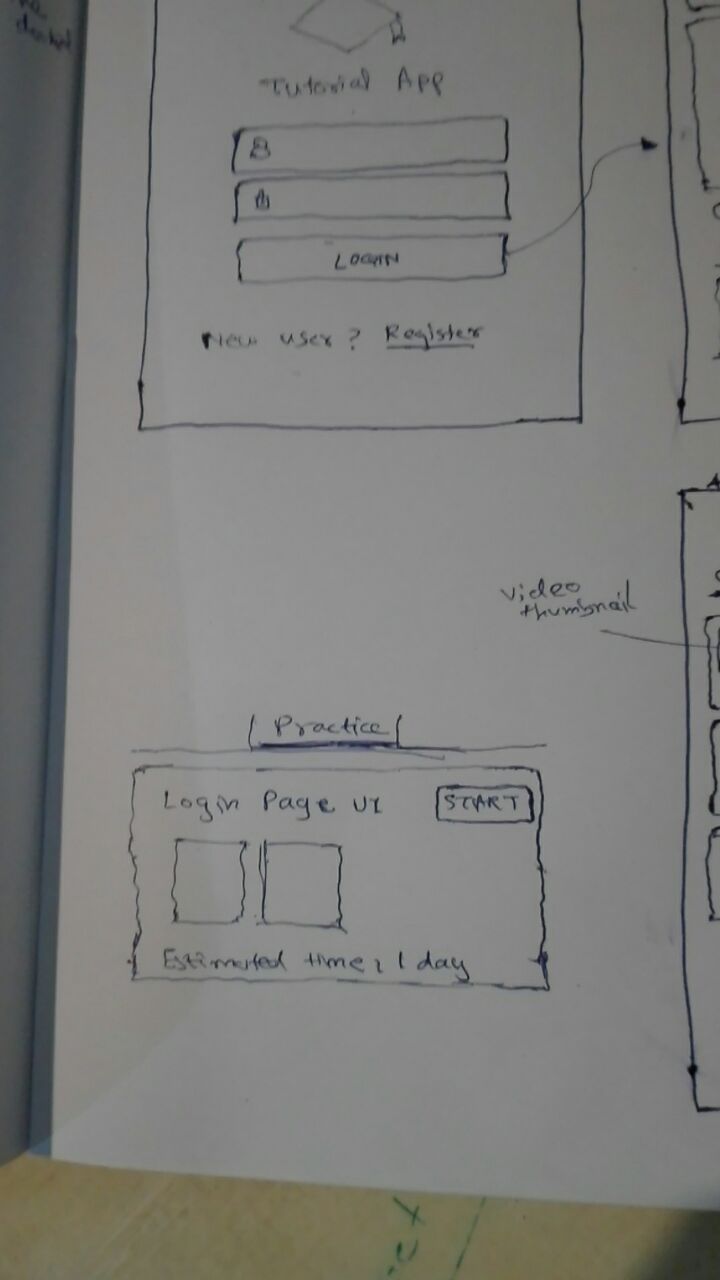 Tutorial App
LOGIN
New user? Register
video
thumbnail
Practice
Login Page UI
START
Estimated time: 1 day